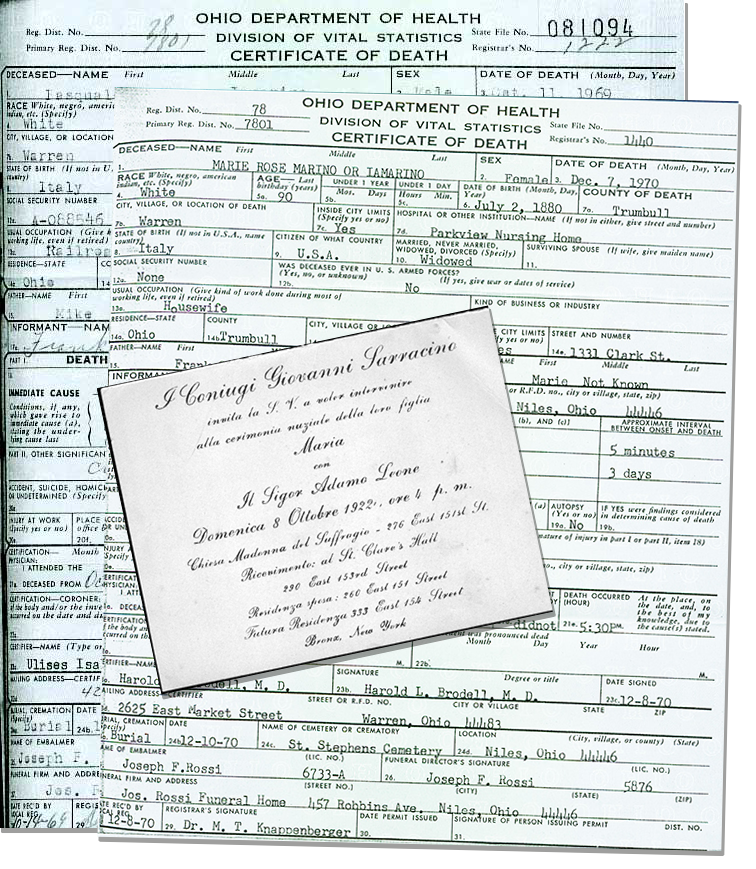 OHIO DEPARTMENT OF HEALTH
DIVISION OF VITAL STATISTICS
CERTIFICATE OF DEATH
Reg. Dist. No.
Primary Reg. Dist. No. 7801
State File No. 081094
Registrar's No. 1222
DECEASED—NAME First Middle Last
SEX
DATE OF DEATH (Month, Day, Year)
Male
Oct. 11, 1969
RACE White, negro, american
indian, etc. (Specify)
White
CITY, VILLAGE, OR LOCATION
Warren
STATE OF BIRTH (If not in U.
Italy
SOCIAL SECURITY NUMBER
A-088546
USUAL OCCUPATION (Give k
working life, even if retired)
Railroa
RESIDENCE—STATE
Ohio
FATHER—NAME First
Mike
INFORMANT—NAM
Frank
PART I. DEATH
IMMEDIATE CAUSE
Conditions, if any,
which gave rise to
immediate cause (a),
stating the under-
lying cause last
PART II. OTHER SIGNIFICAN
ACCIDENT, SUICIDE, HOMICI
OR UNDETERMINED (Specify
INJURY AT WORK
(Specify yes or no)
PLACE
office b
20f.
CERTIFICATION— Month
PHYSICIAN:
I ATTENDED THE
DECEASED FROM
CERTIFICATION—CORONER:
CERTIFIER—NAME (Type or
Ulises Isa
MAILING ADDRESS—CERTIF
BURIAL, CREMATION
DATE
Burial
24b.
NAME OF EMBALMER
Joseph F.
FUNERAL FIRM AND ADDRE
Jos. F
DATE REC'D BY
LOCAL REG.
10-14-69
OHIO DEPARTMENT OF HEALTH
DIVISION OF VITAL STATISTICS
CERTIFICATE OF DEATH
Reg. Dist. No. 78
Primary Reg. Dist. No. 7801
State File No.
Registrar's No. 1440
DECEASED—NAME First Middle Last
SEX
DATE OF DEATH (Month, Day, Year)
1. MARIE ROSE MARINO OR IAMARINO
2. Female
3. Dec. 7, 1970
RACE White, negro, american
indian, etc. (Specify)
4. White
AGE— Last
birthday (years)
5a. 90
UNDER 1 YEAR
Mos. Days
5b.
UNDER 1 DAY
Hours Min.
5c.
DATE OF BIRTH (Month, Day,
Year)
6. July 2, 1880
COUNTY OF DEATH
7a. Trumbull
CITY, VILLAGE, OR LOCATION OF DEATH
7b. Warren
INSIDE CITY LIMITS
(Specify yes or no)
7c. Yes
HOSPITAL OR OTHER INSTITUTION—NAME (If not in either, give street and number)
7d. Parkview Nursing Home
STATE OF BIRTH (If not in U.S.A., name
country)
8. Italy
CITIZEN OF WHAT COUNTRY
9. U.S.A.
MARRIED, NEVER MARRIED,
WIDOWED, DIVORCED (Specify)
10. Widowed
SURVIVING SPOUSE (If wife, give maiden name)
11.
SOCIAL SECURITY NUMBER
12a. None
WAS DECEASED EVER IN U. S. ARMED FORCES?
(Yes, no, or unknown) (If yes, give war or dates of service)
12b. No
USUAL OCCUPATION (Give kind of work done during most of
working life, even if retired)
13a. Housewife
KIND OF BUSINESS OR INDUSTRY
RESIDENCE—STATE
14a. Ohio
COUNTY
14b. Trumbull
CITY, VILLAGE OR LO
CITY LIMITS
yes or no)
STREET AND NUMBER
14e. 1331 Clark St.
FATHER—NAME First
15. Frank
First Middle Last
Marie Not Known
INFORMAN
or R.F.D. no., city or village, state, zip)
Niles, Ohio 44446
(b), AND (c)]
APPROXIMATE INTERVAL
BETWEEN ONSET AND DEATH
5 minutes
3 days
AUTOPSY
(Yes or no)
19a. No
IF YES were findings considered
in determining cause of death
19b.
nature of injury in part I or part II, item 18)
no., city or village, state, zip)
DEATH OCCURRED
(HOUR)
At the place, on
the date, and, to
the best of my
knowledge, due to
the cause(s) stated.
didnot 21e. 5:30PM.
was pronounced dead
Month Day Year Hour
22b. M.
Harold L. Brodell, M. D.
SIGNATURE Degree or title
23b. Harold L. Brodell, M. D.
DATE SIGNED
23c. 12-8-70
MAILING ADDRESS—CERTIFIER STREET OR R.F.D. NO. CITY OR VILLAGE STATE ZIP
2625 East Market Street Warren, Ohio 44483
BURIAL, CREMATION
Burial
DATE
24b. 12-10-70
NAME OF CEMETERY OR CREMATORY
24c. St. Stephens Cemetery
LOCATION (City, village, or county) (State)
24d. Niles, Ohio 44446
NAME OF EMBALMER (LIC. NO.)
Joseph F.Rossi 6733-A
FUNERAL DIRECTOR'S SIGNATURE (LIC. NO.)
26. Joseph F. Rossi 5876
FUNERAL FIRM AND ADDRESS (STREET NO.) (CITY) (STATE) (ZIP)
Jos. Rossi Funeral Home 457 Robbins Ave. Niles, Ohio 44446
DATE REC'D BY
LOCAL REG.
12-8-70
REGISTRAR'S SIGNATURE
29. Dr. M. T. Knappenberger
DATE PERMIT ISSUED
30.
SIGNATURE OF PERSON ISSUING PERMIT
31.
DIST. NO.
I Coniugi Giovanni Sarracino
invita la S. V. a voler intervenire
alla cerimonia nuziale della loro figlia
Maria
con
Il Sigor Adamo Leone
Domenica 8 Ottobre 1922, ore 4 p. m.
Chiesa Madonna del Suffragio - 276 East 151st St.
Ricevimento: al St. Clare's Hall
290 East 153rd Street
Residenza sposa: 260 East 151 Street
Futura Residenza 333 East 154 Street
Bronx, New York